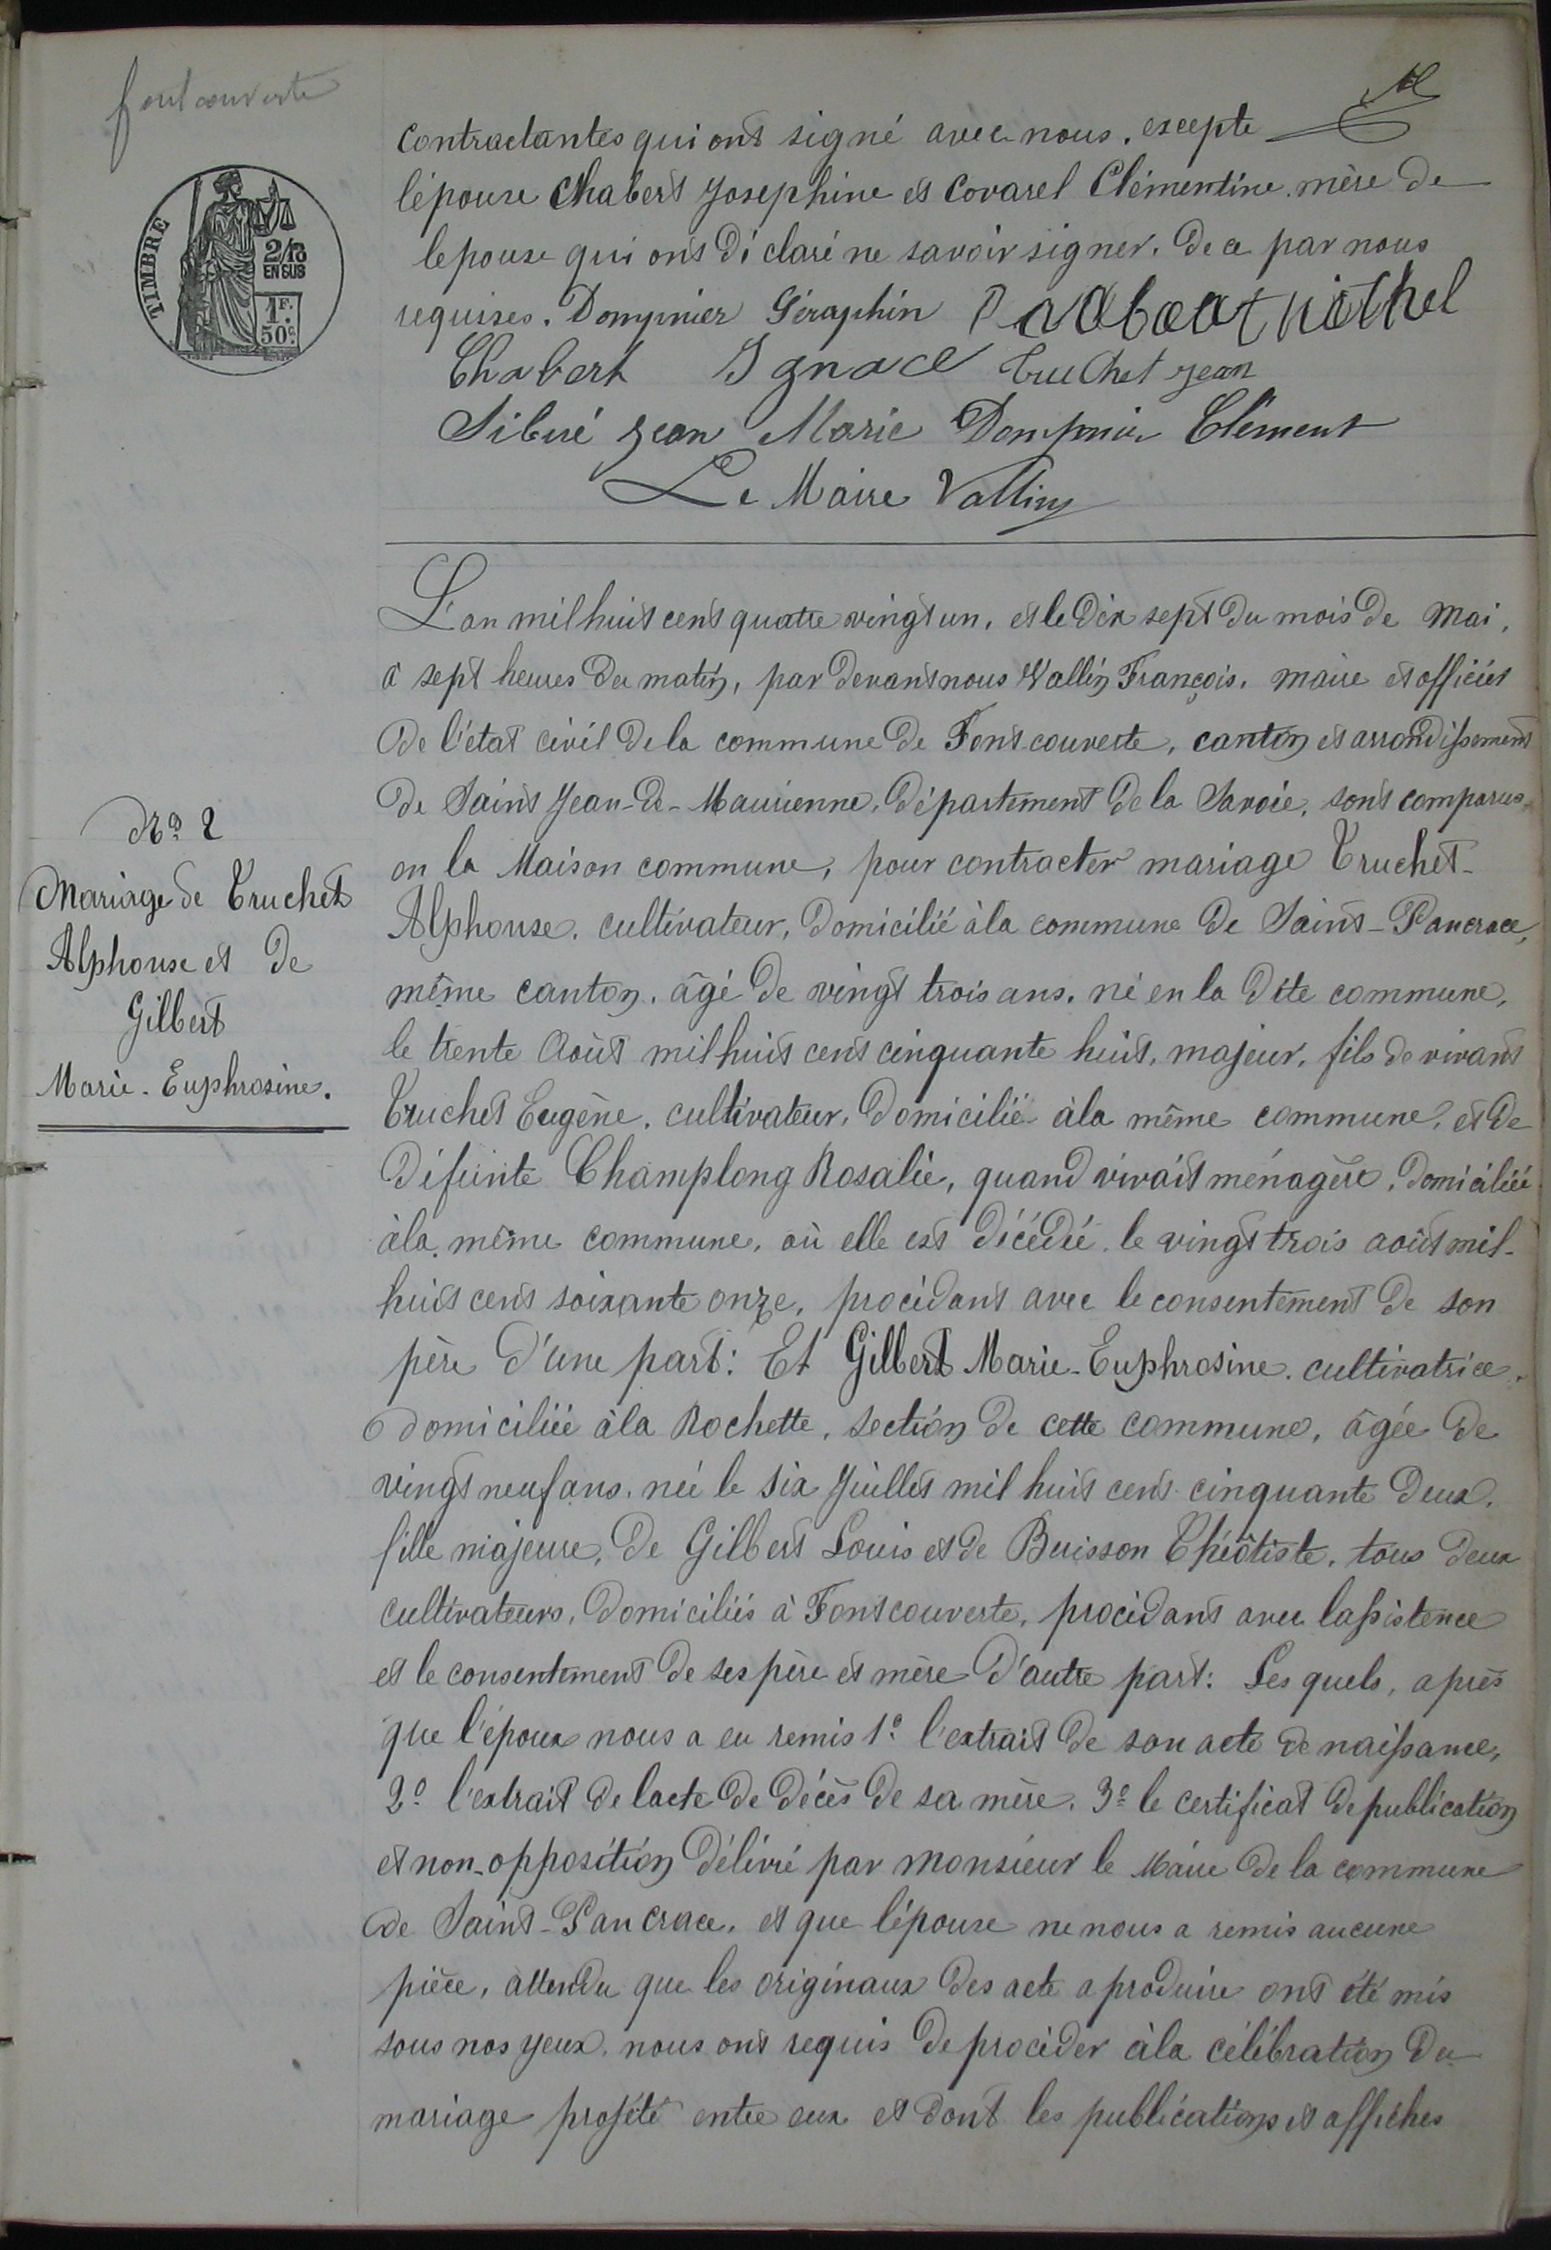 fontcouverte
TIMBRE
2/10
EN SUS
1F.
50c.
contractantes qui ont signé avec nous, excepte
lépouse Chabert Josephine et Covarel Clémentine mère de
lepouse qui ont déclaré ne savoir signer. de ce par nous
requises. Dompnier Séraphin
Chabert Ignace Truchet Jean
Sibué Jean Marie Dompnier Clément
Le Maire Vallin
L'an mil huit cent quatre vingt un, et le dix sept du mois de mai,
à sept heures du matin, par devant nous Vallin François, maire et officier
de l'état civil de la commune de Fontcouverte, canton et arrondissement
de Saint Jean-de-Maurienne, département de la Savoie, sont comparus
en la Maison commune, pour contracter mariage Truchet-
Alphonse, cultivateur, domicilié à la commune de Saint-Pancrace,
même canton, âgé de vingt trois ans, né en la dite commune,
le trente Août mil huit cent cinquante huit, majeur, fils de vivant
Truchet Eugène, cultivateur, domicilié à la même commune, et de
défunte Champlong Rosalie, quand vivait ménagère, domiciliée
à la même commune, où elle est décédée le vingt trois août mil-
huit cent soixante onze, procédant avec le consentement de son
père d'une part: Et Gilbert Marie-Euphrosine, cultivatrice,
domiciliée à la Rochette, section de cette commune, âgée de
vingt neuf ans, née le six Juillet mil huit cent cinquante deux,
fille majeure, de Gilbert Louis et de Buisson Théotiste, tous deux
cultivateurs, domiciliés à Fontcouverte, procédant avec lassistence
et le consentement de ses père et mère d'autre part: Les quels, après
que l'époux nous a eu remis 1º l'extrait de son acte de naissance,
2º l'extrait de lacte de décès de sa mère, 3º le certificat de publication
et non-opposition délivré par monsieur le Maire de la commune
de Saint-Pancrace, et que lépouse ne nous a remis aucune
pièce, attendu que les originaux des acte a produire ont été mis
sous nos yeux, nous ont requis de procéder à la célébration du
mariage projété entre eux et dont les publications et affiches
Nº 2
Mariage de Truchet
Alphonse et de
Gilbert
Marie-Euphrosine.